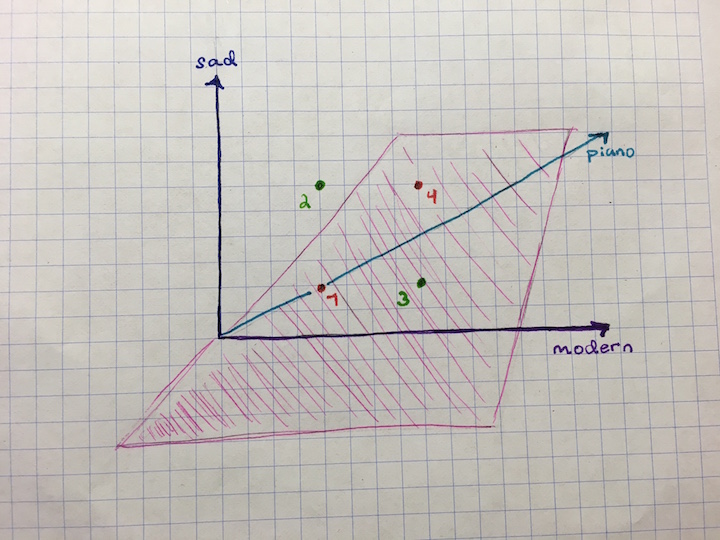 sad
piano
2
4
1
3
modern